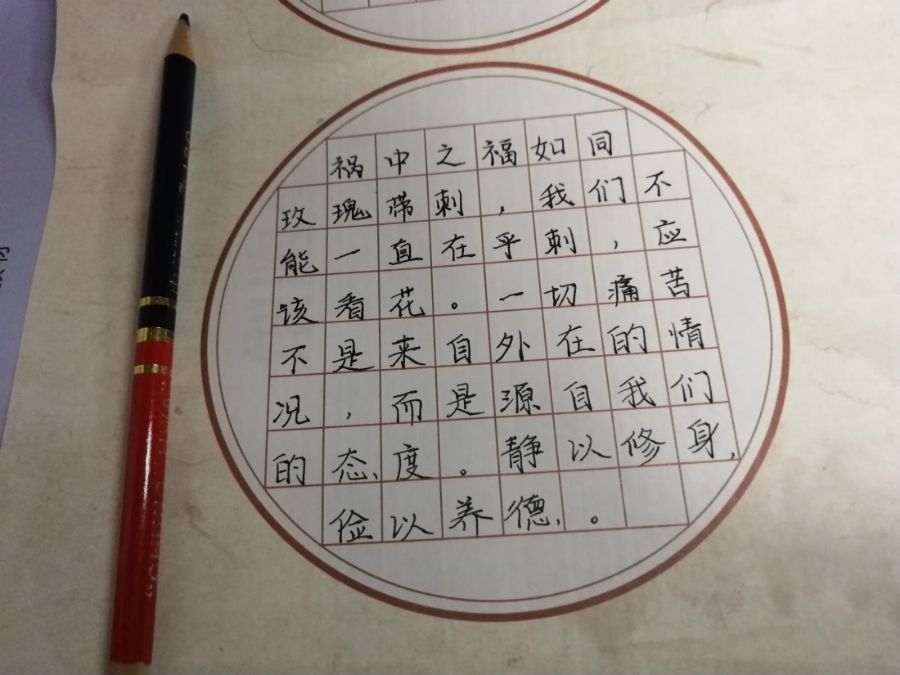 祸中之福如同
玫瑰带刺，我们不
能一直在乎刺，应
该看花。一切痛苦
不是来自外在的情
况，而是源自我们
的态度。静以修身，
俭以养德。